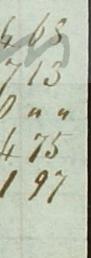 4 65
7 13
0 " "
4 75
1 97